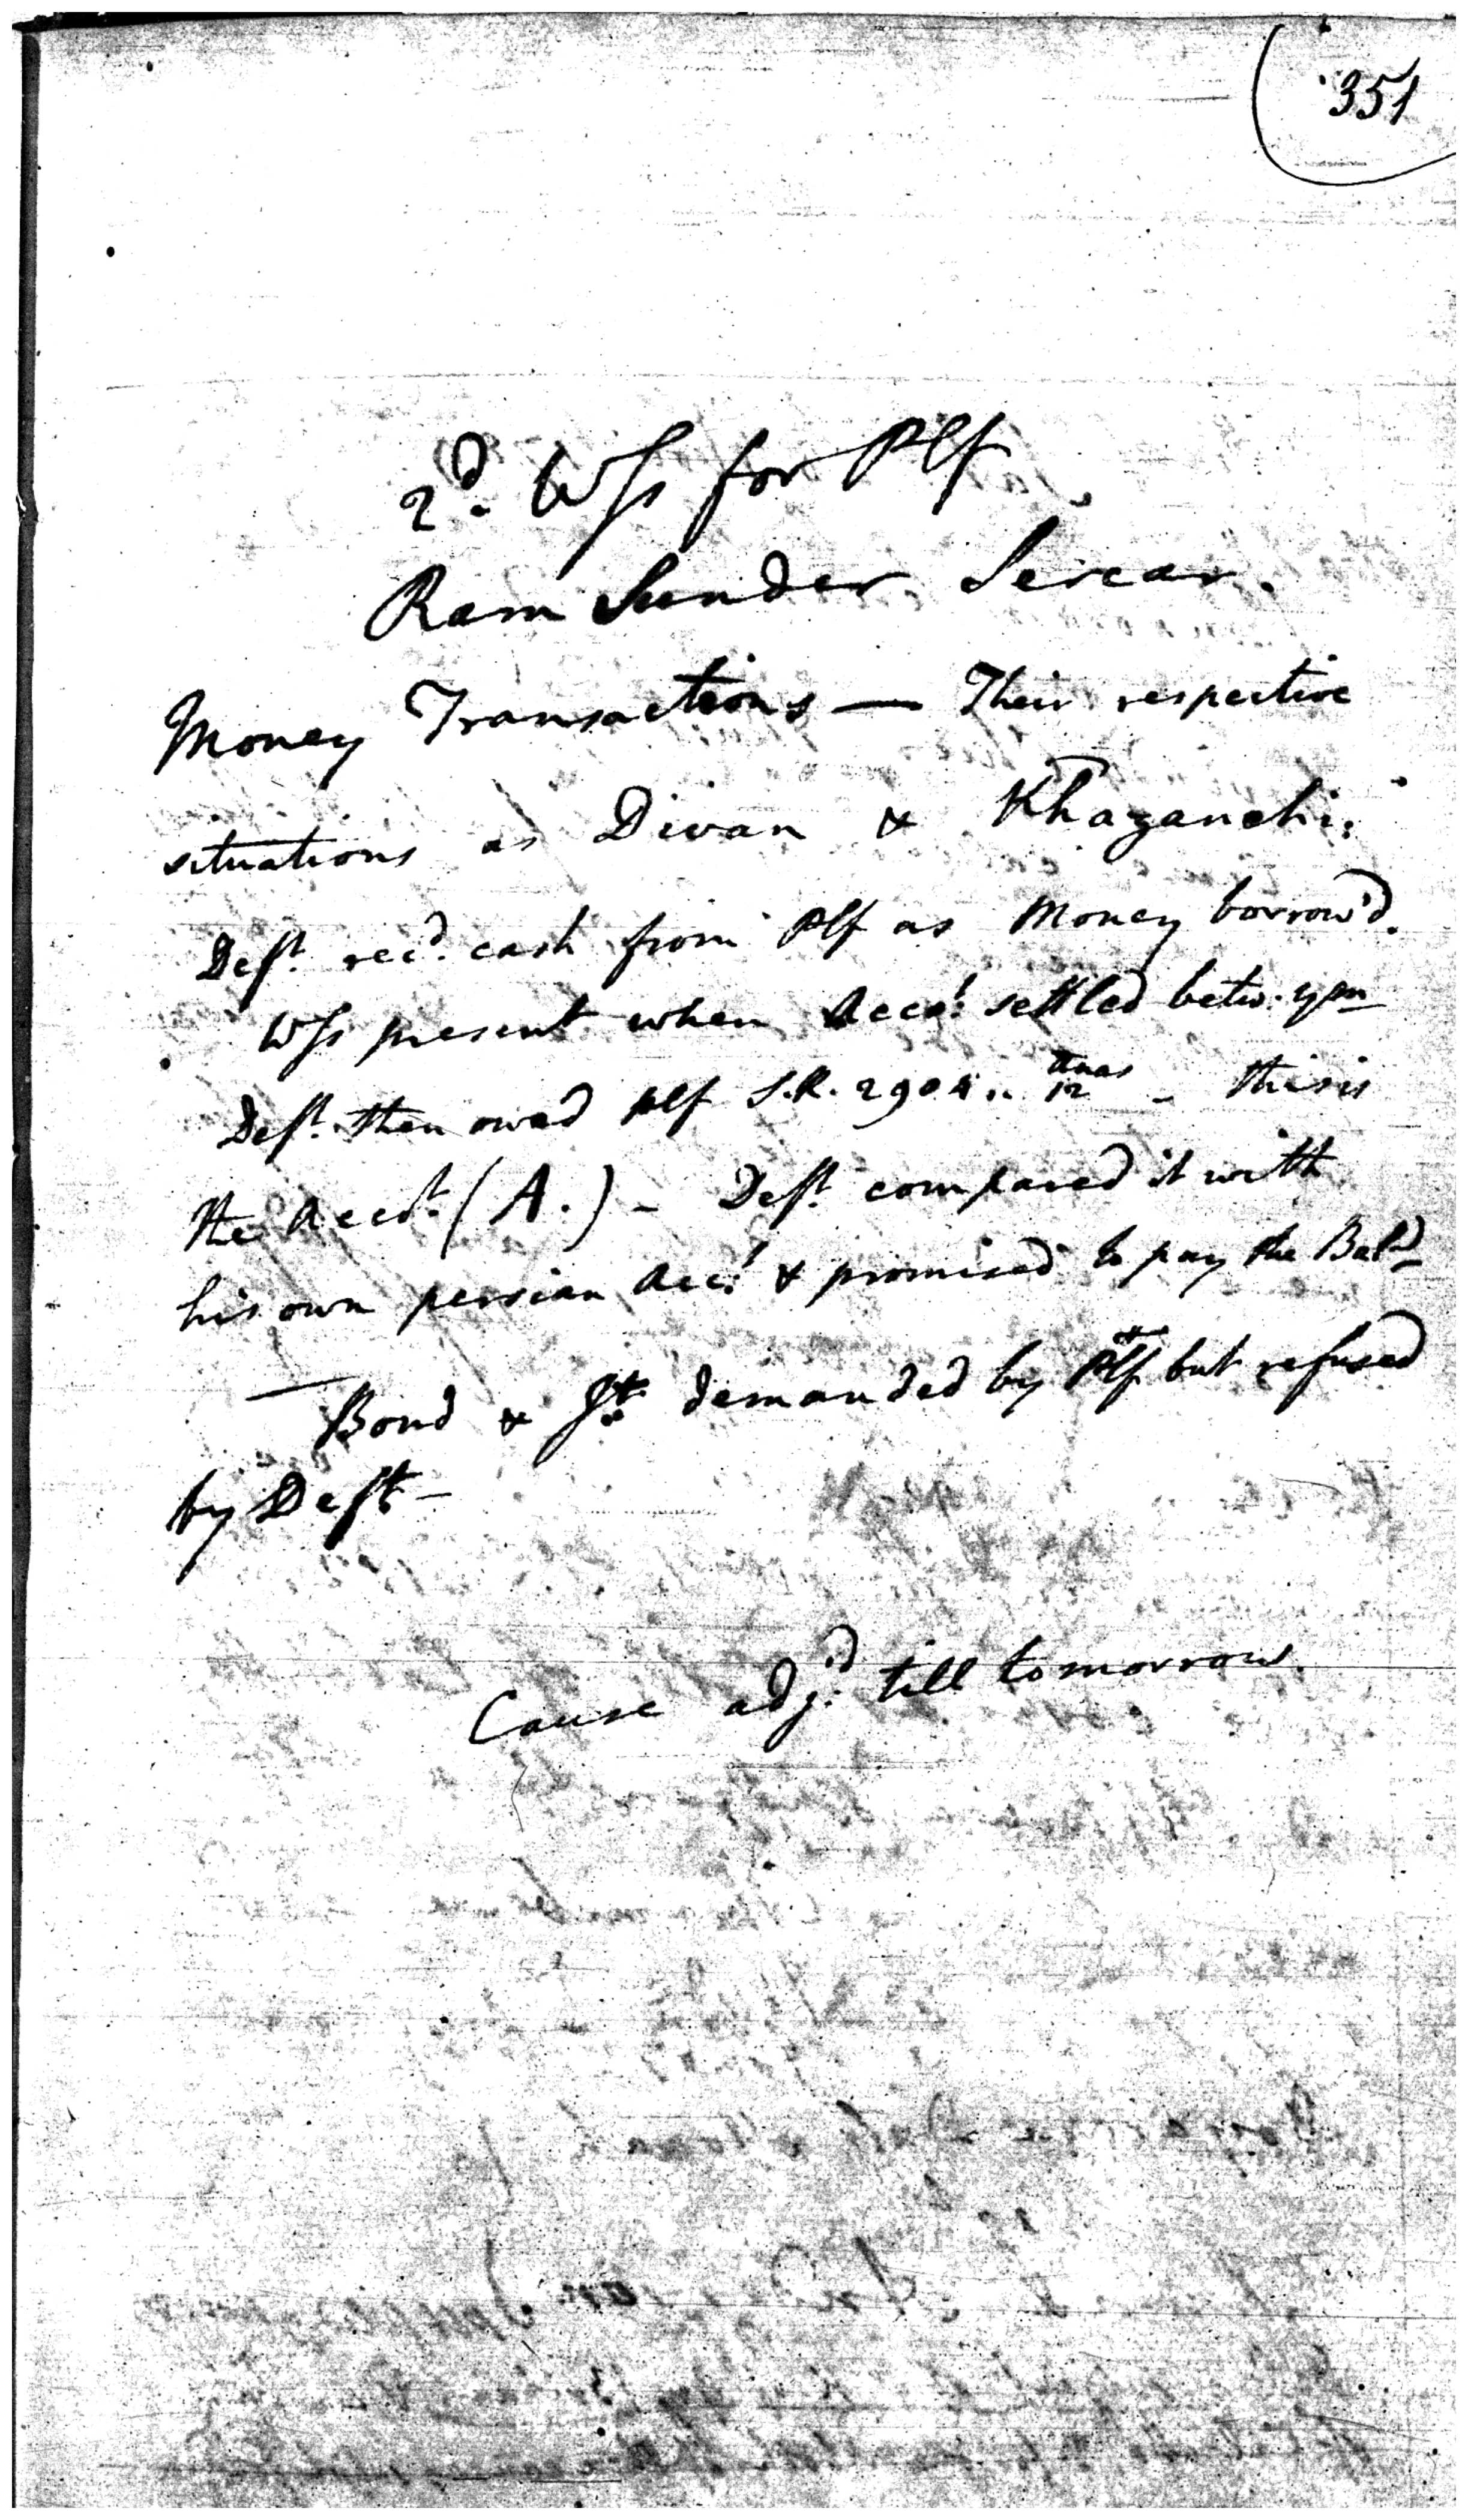 351
2d. Wss for Plf
Ram Sunder Sircar.
Money Transactions — Their respective
situations as Divan & Khazanchi.
Deft. recd. cash from Plf as Money borrow'd.
Wss present when Acct. settled betw. ym
Deft. then owed plf S.R. 2904.. Anas 12 - this is
the Acct. (A.) - Deft. compared it with
his own persian Acct. & promised to pay the Bale
— Bond & Jt. demanded by Plf but refused
by Deft -
Cause adjd. till tomorrow.